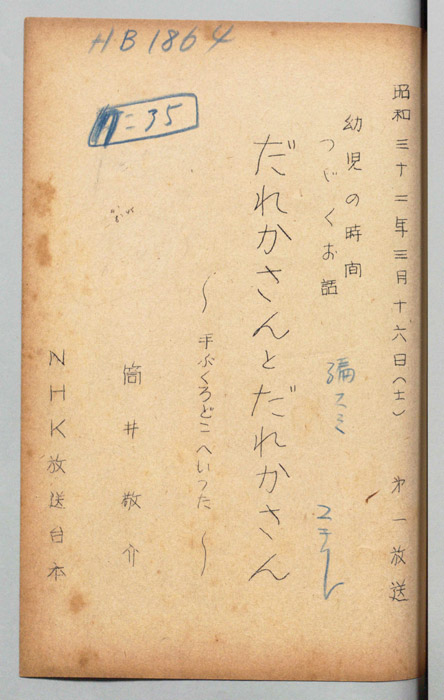 HB1864
昭和三十二年三月十六日(土)　第一放送
幼児の時間
つゞくお話
だれかさんとだれかさん
〜手ぶくろどこへいった〜
筒井敬介
NHK放送台本